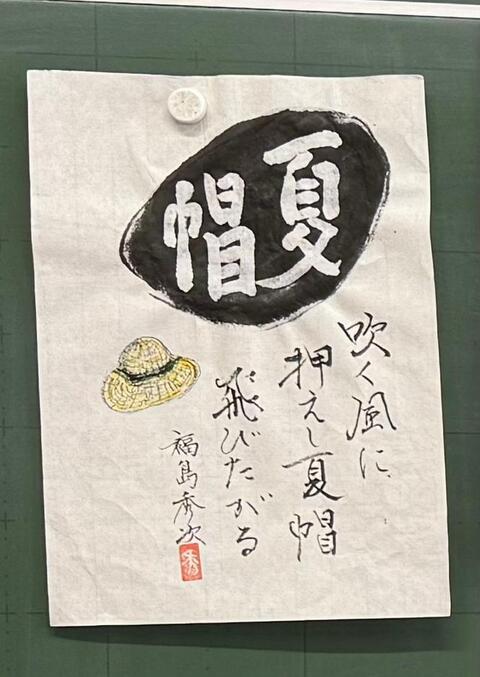 夏帽
吹く風に
押えし夏帽
飛びたがる
福島秀次
秀